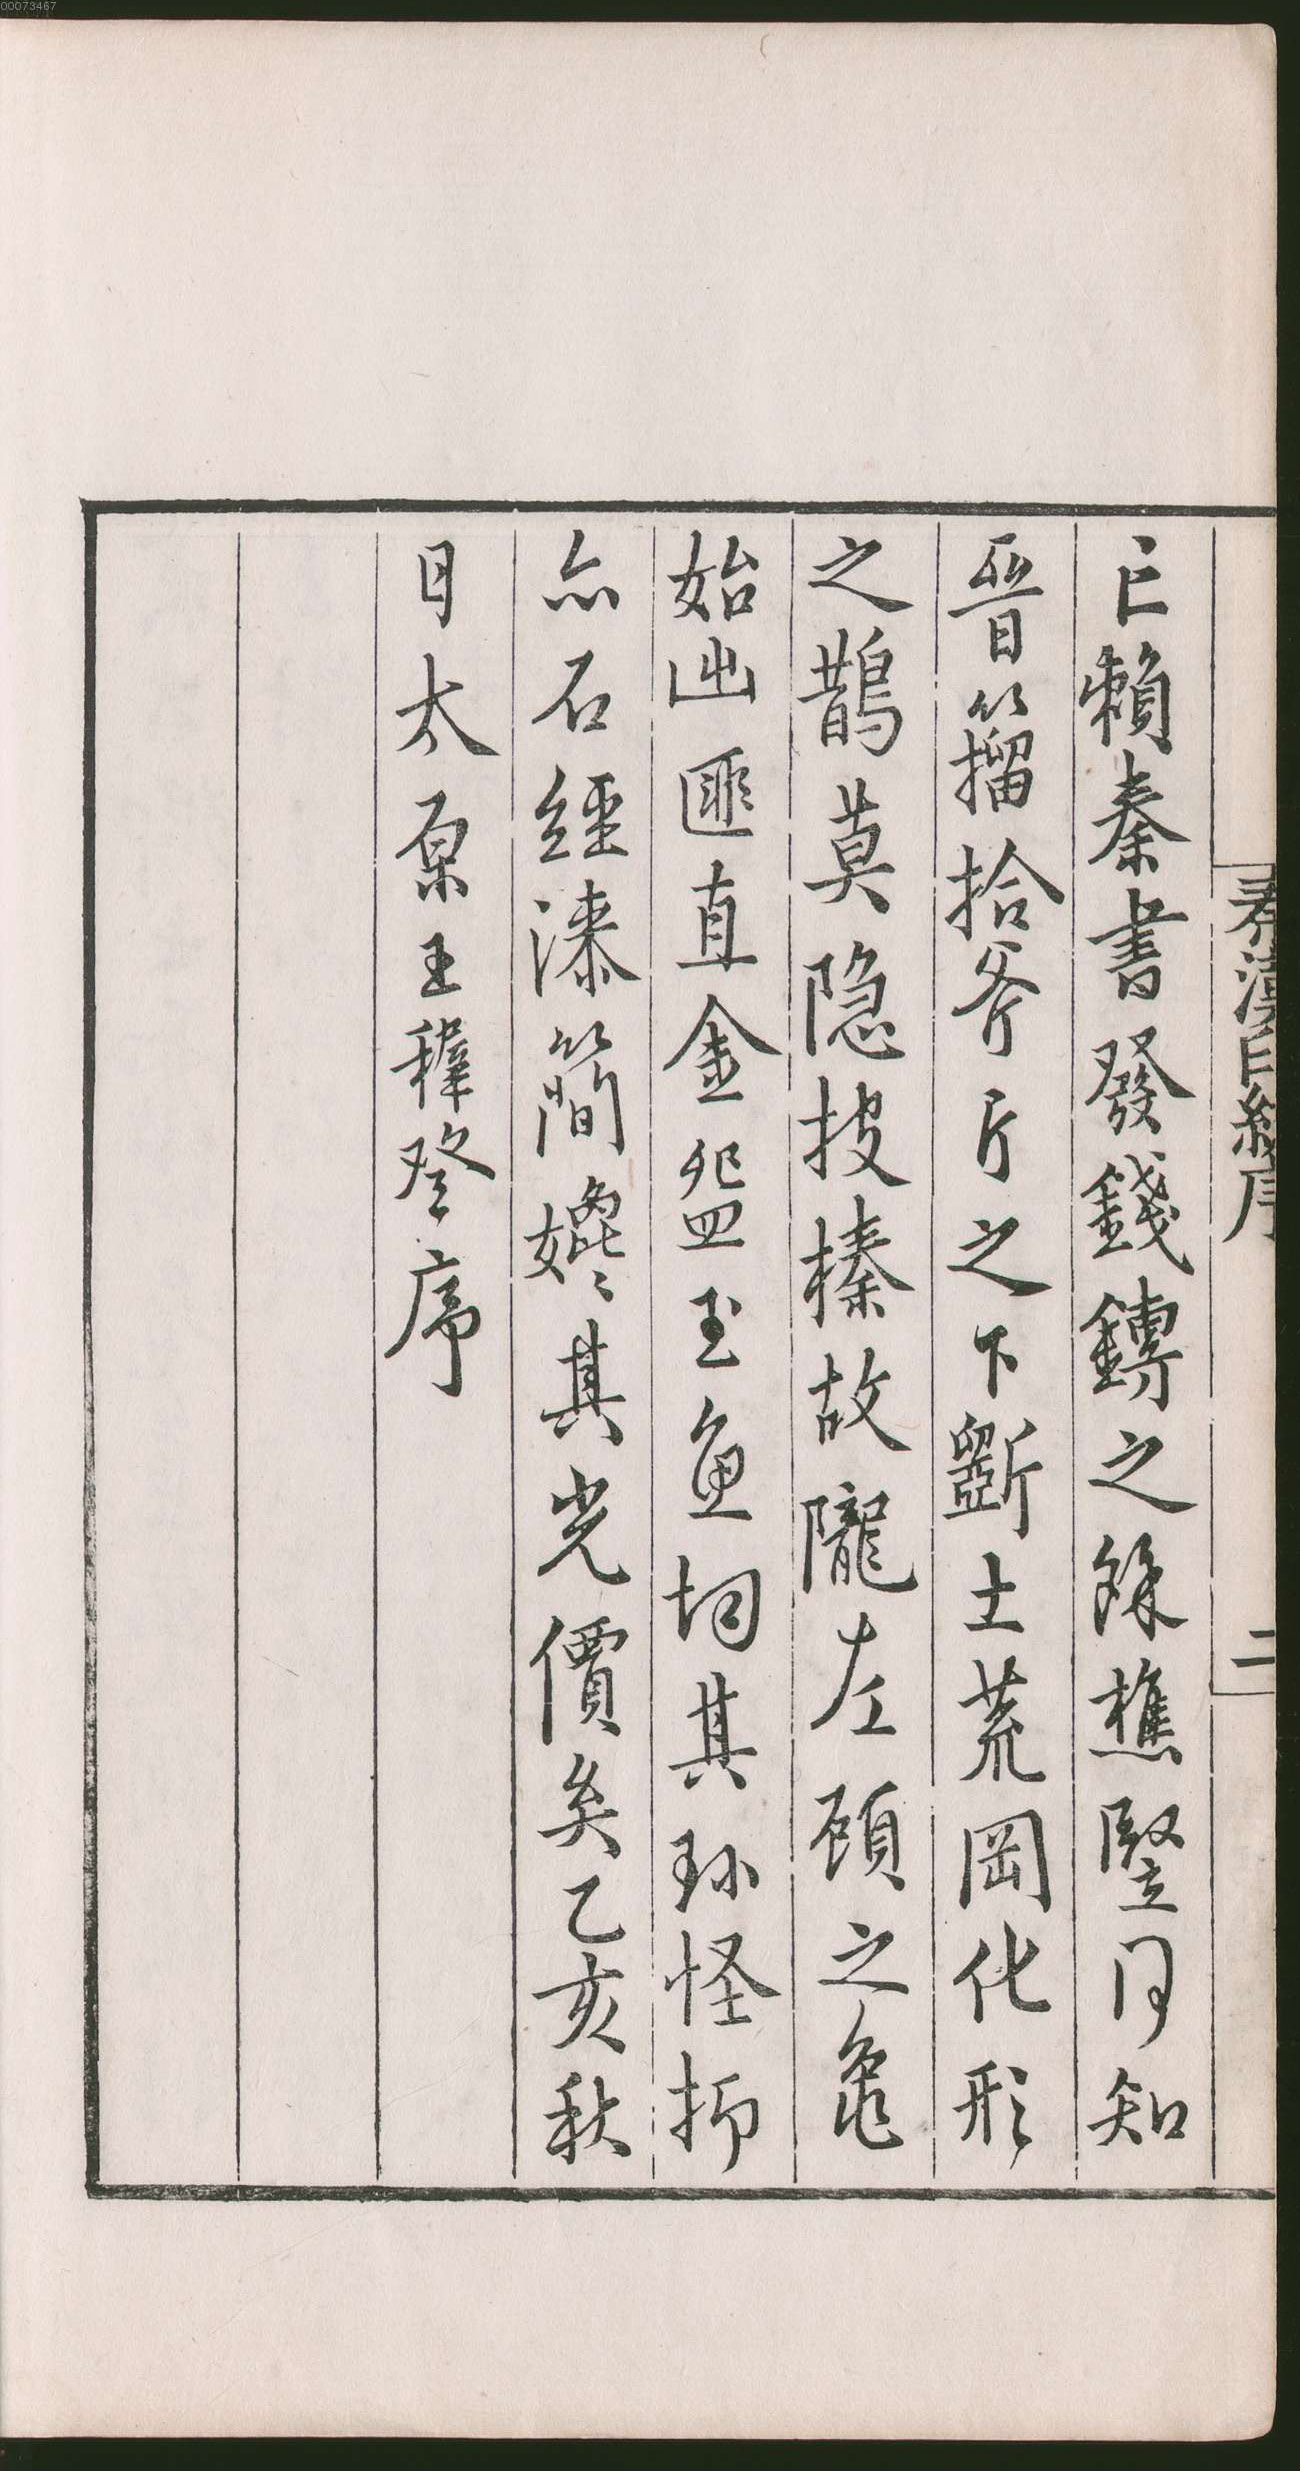 00073467
秦漢印統序 二
亡賴秦書發錢鎛之餘樵豎何知
晉籀拾斧斤之下斵土荒岡化形
之鵲莫隱披榛故隴左顧之龜
始出匪直金盌玉魚均其珍怪抑
亦石經漆簡媲其光價矣乙亥秋
日太原王穉登序